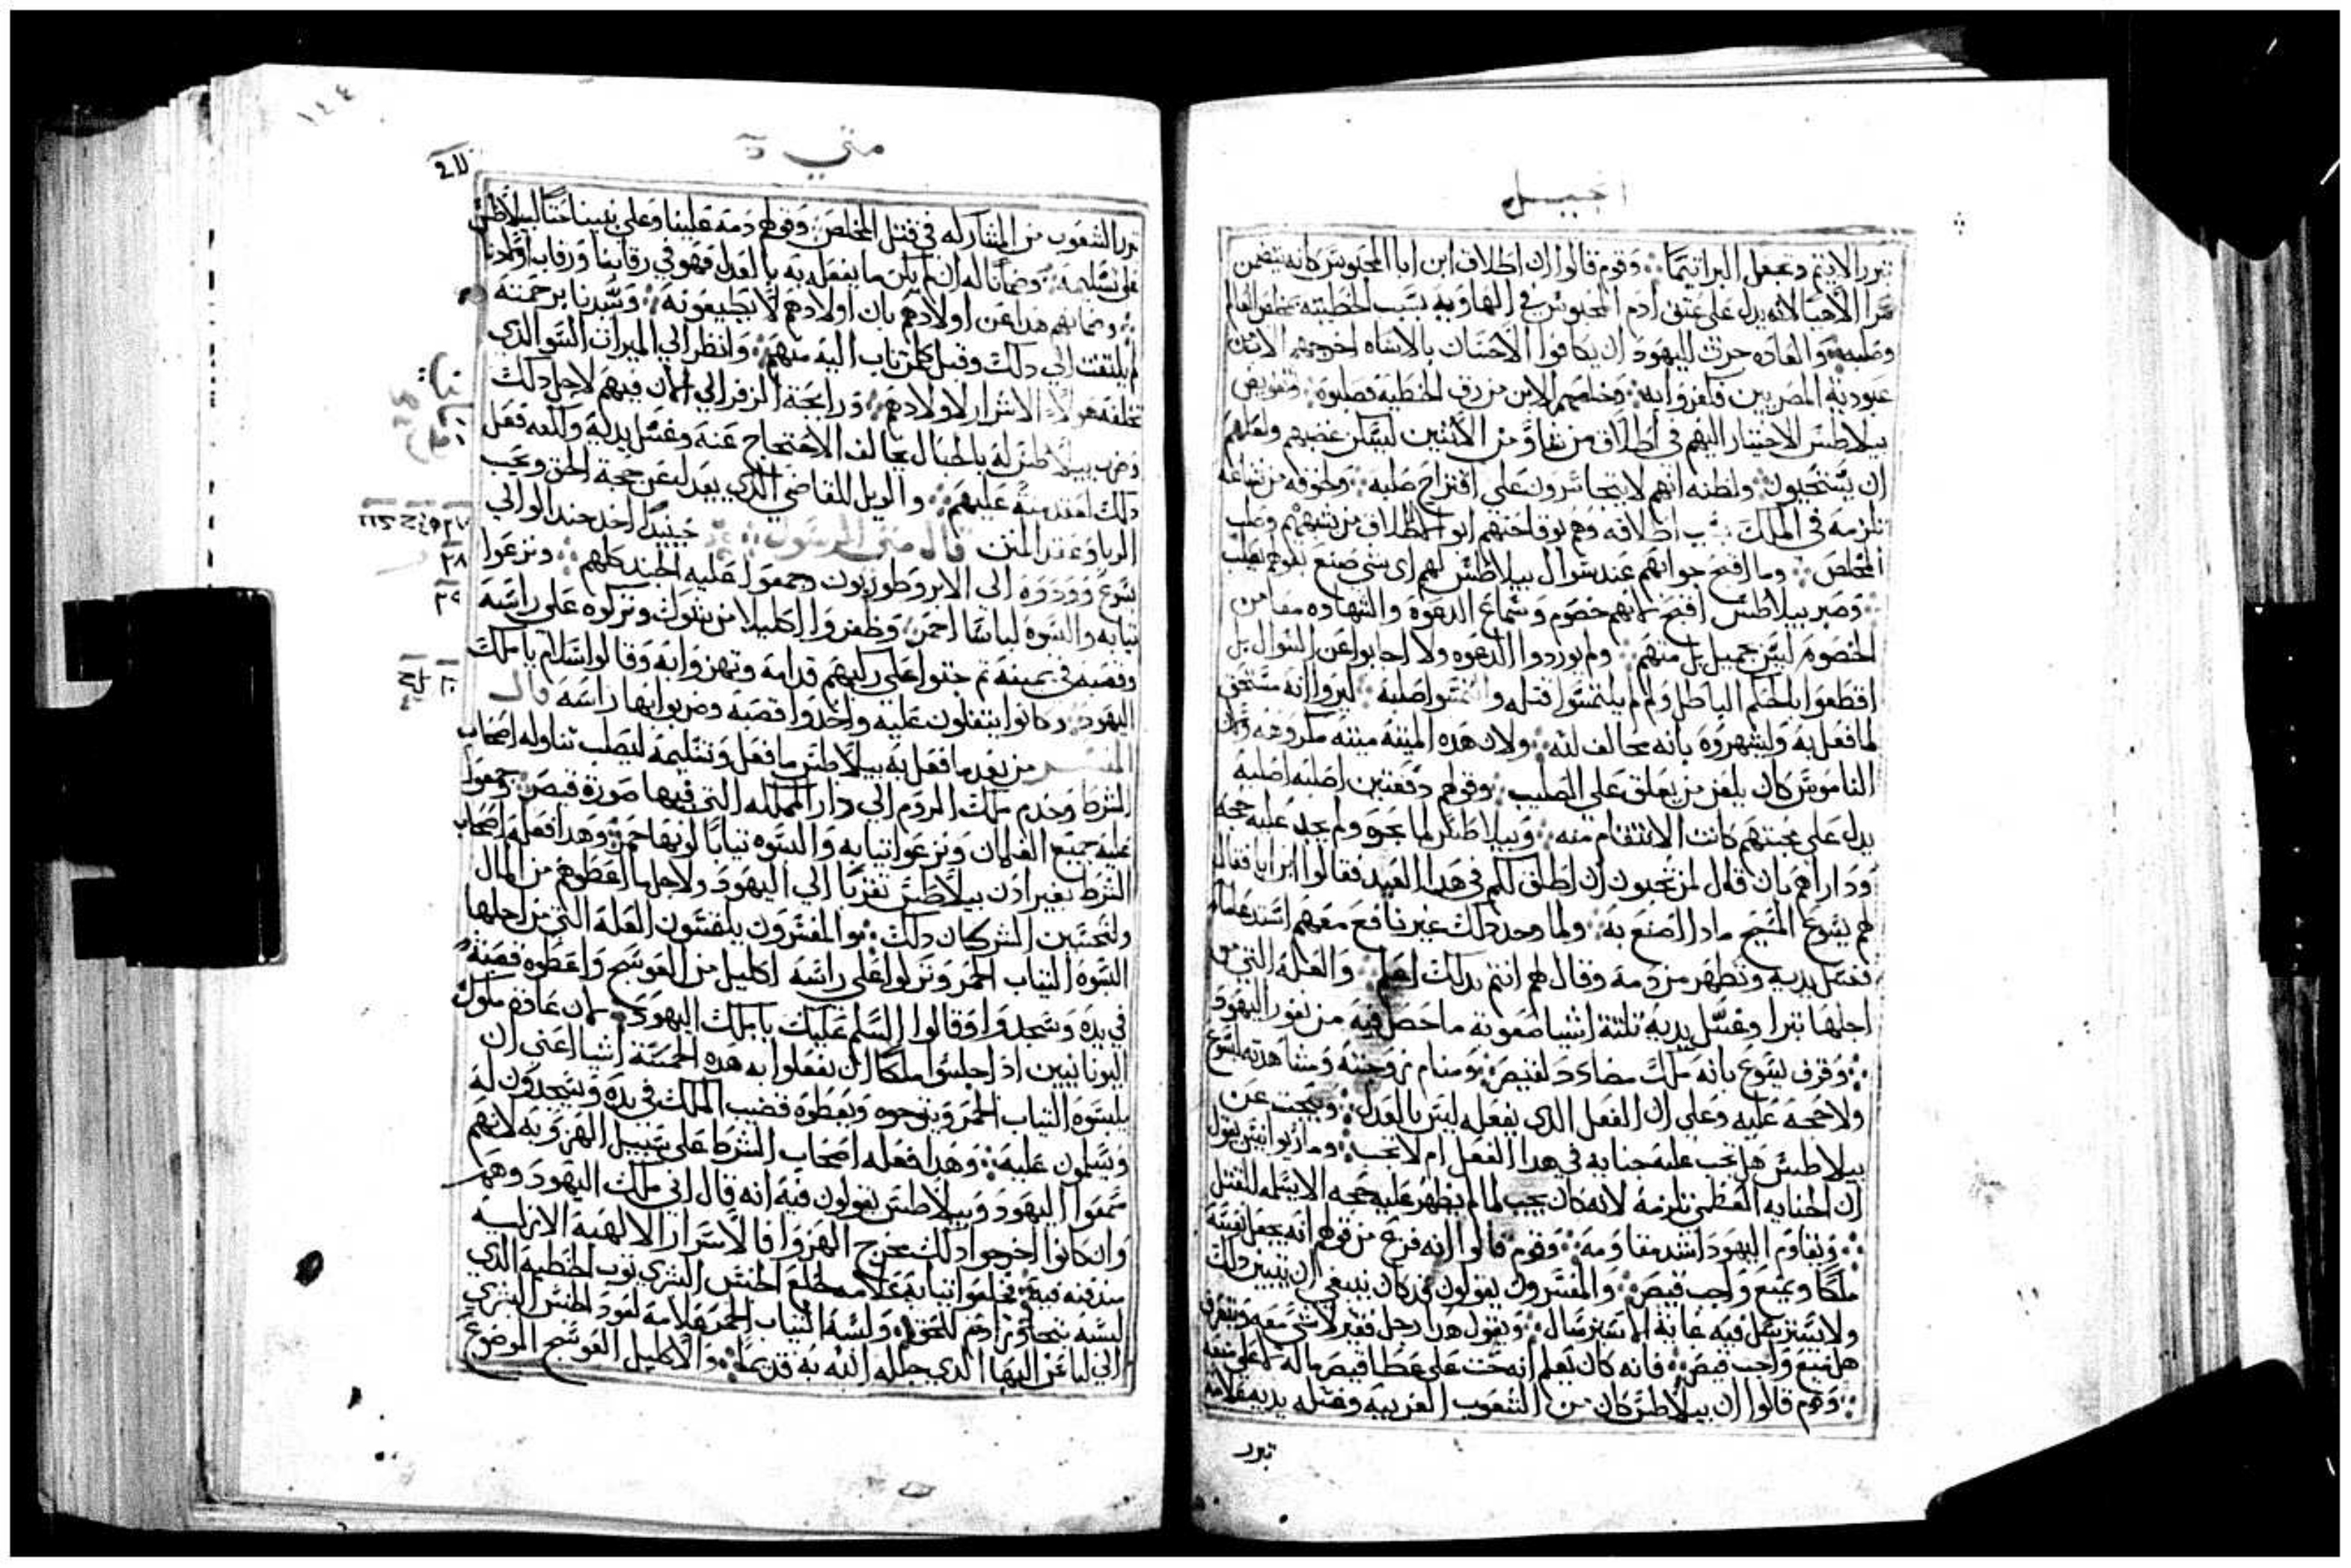 انجيل
تبرر الاثيم وتجعل البرا اثيما وقوم قالوا ان اطلاق ابن ابا المحبوس كانه يتضمن
سرا لاهيا لانه يدل على عتق ادم المحبوس في الهاويه بسبب الخطيته بمخلص العالم
وصلبه والعاده جرت لليهود ان يكافوا الاحسان بالاساه اخرجهم الابن من
عبودية المصريين فكفروا به وخلصهم الابن من رق الخطيه فصلبوه وتفويض
بيلاطس الاختيار اليهم في اطلاق من شاو من الاثنين ليسكن غضبهم ولعلهم
ان يستحيون ولظنه انهم لا يتجاسرون على اقتراح صلبه ولخوفه من شناعه
تلزمه في الملك اطلاقه وهم لوقاحتهم ابو اطلاق من شبههم وصلب
المخلص وما اقبح جوابهم عند سوال بيلاطس لهم اى شي صنع بقولهم يصلب
وصبر بيلاطس اقبح لانهم خصوم وسماع الدعوه والشهاده معا من
الخصوم ليس بجميل بل منهم ولم يوردوا الدعوه ولا اجابوا عن السوال بل
اقطعوا بالحكم الباطل ولم يلتمسوا قتله والتمسوا صلبه ليروا انه مستحق
لما فعل به وليشهروه بانه مخالف لله ولان هذه الميته ميته مكروهه وكان
الناموس كان يلعن من يعلق على الصليب وقولهم دفعتين اصلبه اصلبه
يدل على محبتهم كانت الانتقام منه وبيلاطس لما نحوه ولم يجد عليه حجه
وداراهم بان قال لمن تحبون ان اطلق لكم في هذا العيد فقالوا ابن ابا فقال
لهم يسوع المسيح ماذا اصنع به ولما وجد ذلك غير نافع معهم استدعا ما
فغسل يديه وتطهر من دمه وقال لهم انتم بذلك اعلم والعله التي من
اجلها تبرا وغسل يديه ثلثة اشيا صعوبة ما حصل فيه من نفور اليهود
وقرف يسوع بانه ملك مضادد لقيصر ومنام زوجته ومشاهدته ليسوع
ولا حجه عليه وعلى ان الفعل الذي يفعله ليس بالعدل ويبحث عن
بيلاطس هل تجب عليه جنايه في هذا الفعل ام لا تجب وماراپوانيس يقول
ان الجنايه العظمى تلزمه لانه كان يجب لما لم يظهر عليه حجه الا يسلمه للقتل
ويقاوم اليهود اشد مقاومه وقوم قالوا انه فزع من قولهم انه يجعل نفسه
ملكا ويمنع واجب قيصر والمفسرون يقولون قد كان ينبغي ان يتبين ذلك
ولا يسترسل فيه غاية الاسترسال ويقول هذا رجل فقير لا شي معه ويتعرف
هل منع واجب قيصر فانه كان يعلم انه حث على عطا قيصر ماله لا على منعه
وهم قالوا ان بيلاطس كان من الشعوب الغريبه وغسله يديه علامه
تبرر
متي
١٤٤
تبرر الشعوب من المشاركه في قتل المخلص وقولهم دمه علينا وعلى بنينا حثا لبيلاطس
على تسليمه وضمانا له ان لم يكن ما يفعله به بالعدل فهو في رقابنا ورقاب اولادنا
وضمانهم هذا عن اولادهم بان اولادهم لا يطيعونه وسيدنا برحمته
لم يلتفت الى ذلك وقبل كل من تاب اليه منهم وانظر الى الميراث السو الذي
تخلفه هولاء الاشرار لاولادهم ورايحة الزفر الى الان فيهم لاجل ذلك
وضرب بيلاطس له بالحبال يخالف الاحتجاج عنه وغسل يديه ولكنه فعل
ذلك عليهم والويل للقاضي الذي يعدل عن محجة الحق ويحب
الربا وعقد المنن قال متى الرسول حينيذ اخذ جند الوالي
يسوع وودوه الى الابروطوريون وجمعوا عليه الجند كلهم ونزعوا
ثيابه والبسوه لباسا احمر وظفروا اكليلا من شوك وتركوه على راسه
وقصبه في يمينه ثم جثوا على ركبهم قدامه وتهزوا به وقالوا السلام يا ملك
اليهود وكانوا يتفلون عليه واخذوا قصبه وضربوا بها راسه قال
المفسر من بعد ما فعل به بيلاطس ما فعل وتسليمه ليصلب تناوله اصحاب
الشرط وخدم ملك الروم الى دار المملكه التي فيها صورة قيصر وجمعوا
عليه جميع الغلمان ونزعوا ثيابه والبسوه ثيابا لونها احمر وهذا فعله اصحاب
الشرط بغير اذن بيلاطس تقربا الى اليهود ولاجل ما اعطوهم من المال
ولمحبتين الشر كان ذلك والمفسرون يلتمسون العله التي من اجلها
البسوه الثياب الحمر ونزلوا على راسه اكليل من العوسج واعطوه قصبة
في يده وسجدوا وقالوا السلم عليك يا ملك اليهود لان عادة ملوك
اليونانيين اذا جلسوا ملكا ان يفعلوا به هذه الخمسة اشيا اعني ان
يلبسوه الثياب الحمر ويتوجوه ويعطوه قضيب الملك في يده ويسجدون له
ويسلمون عليه وهذا فعله اصحاب الشرط على سبيل الهزو به لانهم
سمعوا اليهود وبيلاطس يقولون فيه انه قال انى ملك اليهود وهم
وان كانوا اخرجوا ذلك مخرج الهزوا فالاسرار الالهية الازليه
مندفنه فيه فخلعوا ثيابه علامه لخلع الجنس البشري ثوب الخطيه الذي
لبسه بتجاوز ادم للحق ولبسه الثياب الحمر علامة لعود الجنس البشري
الى لباس البها الذي جمله الله به قديما والاكليل العوسج الموضوع
٢٧
٢٨
٢٩
٣٠